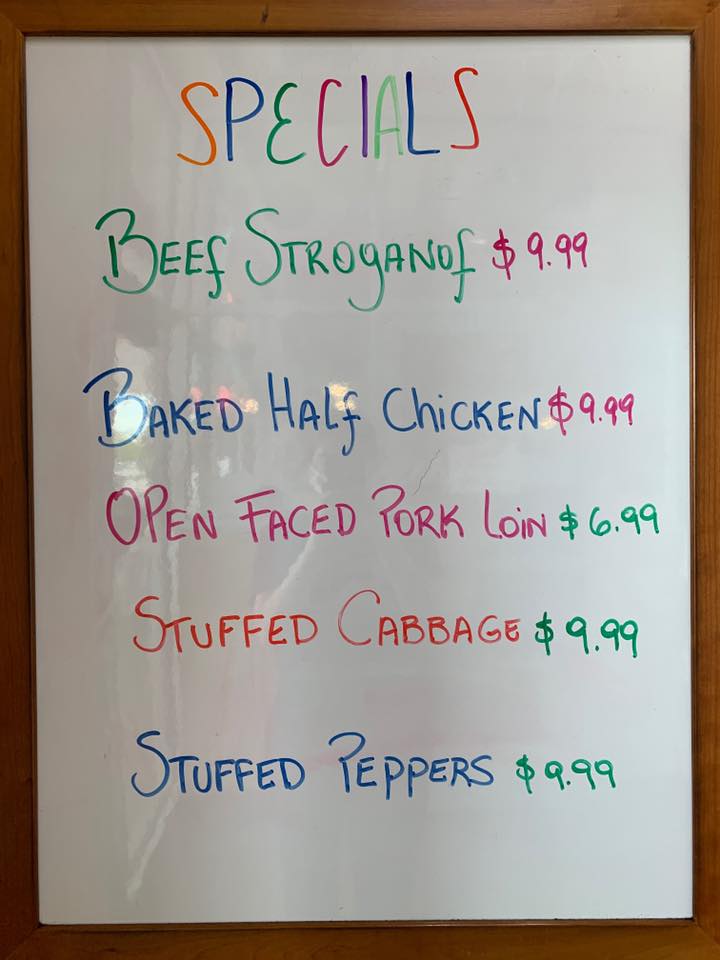 SPECIALS
BEEf STROGANOf $9.99
BAKED Half ChiCKEN $9.99
OPEN FACED PORK LOiN $6.99
STUFFED CABBAGE $9.99
STUFFED PEPPERS $9.99